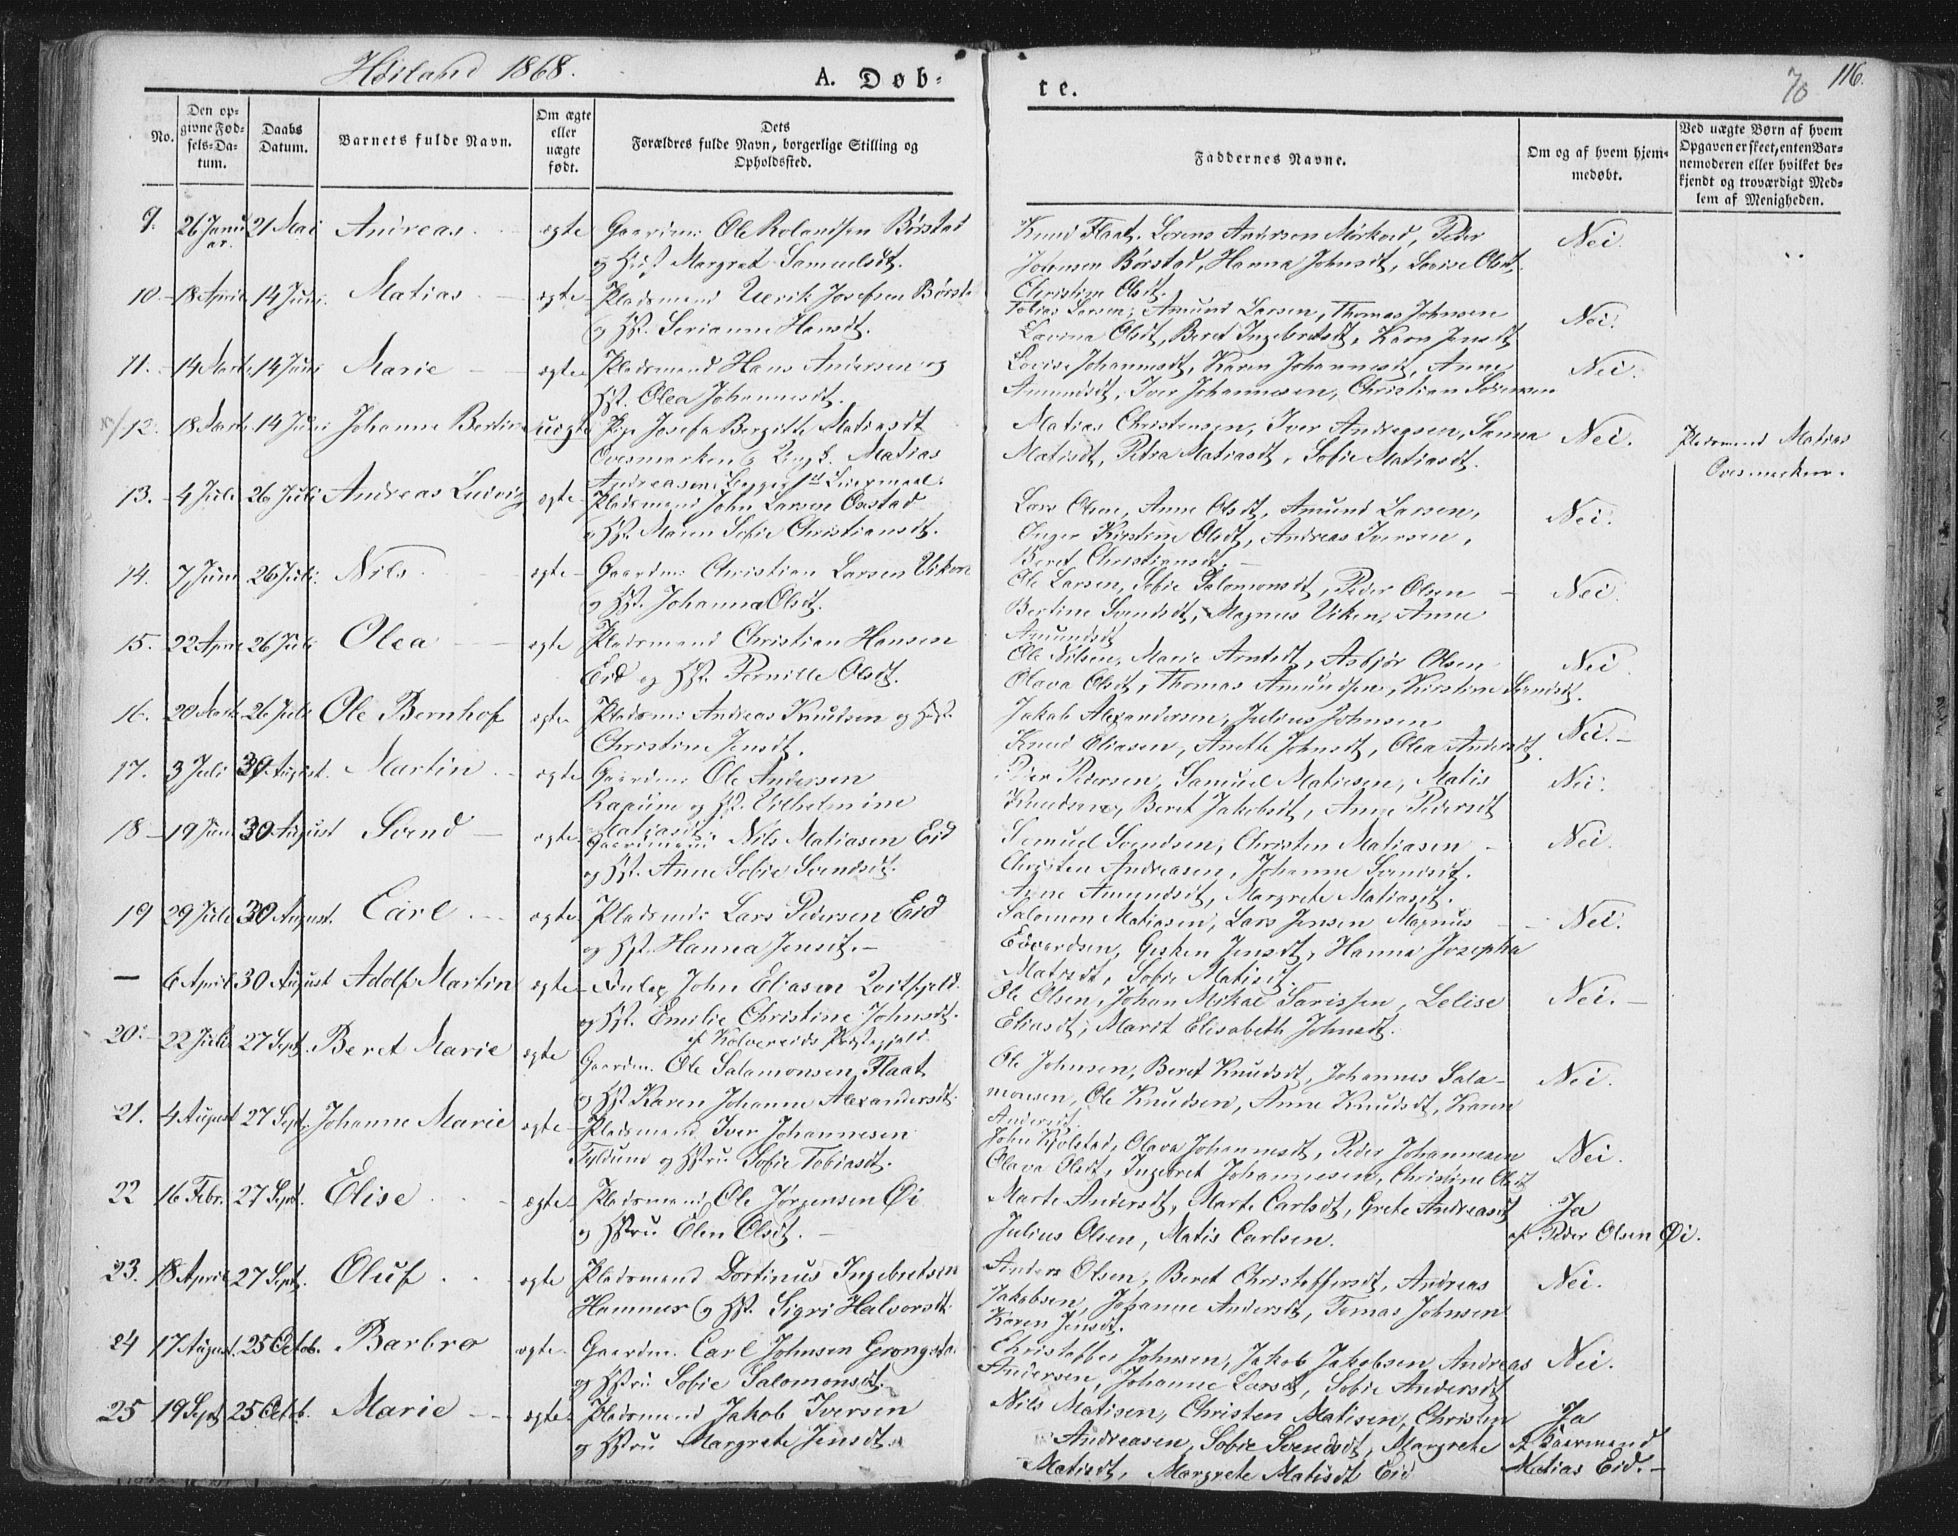 Høiland 1868.
A. Døb=
te.
70
116.
No.
Den op=
givne Fød=
sels=Da=
tum.
Daabs
Datum.
Barnets fulde Navn.
Om ægte
eller
uægte
født.
Dets
Forældres fulde Navn, borgerlige Stilling og
Opholdssted.
Faddernes Navne.
Om og af hvem hjem=
medøbt.
Ved uægte Børn af hvem
Opgaven er skeet, enten Bar=
nemoderen eller hvilket be=
kjendt og troværdigt Med=
lem af Menigheden.
9. 26 Janu 21 Mai Andreas ægte Gaardm: Ole Rolandsen Børstad
ar.
og Hust Margret Samuelsdt.
Knud Flaat, Lorens Andersen Mørkved, Peder
Johnsen Børstad, Hanna Johnsdt, Lovise Olsdt.
Christine Olsdt.
Nei
10 18 April 14 Juni Matias ægte Pladsmand Ulrik Josefsen Børst.
og Hst. Serianne Hansdt.
Tobias Larsen, Amund Larsen, Thomas Johnsen
Lovina Olsdt, Beret Ingebretsdt, Karn Jensdt
Nei.
11. 14 Marts 14 Juni Marie ægte Pladsmand Hans Andersen og
Hst. Olea Johannesdt.
Lovise Johannesdt, Karen Johannesdt, Anne
Amundsdt, Iver Johannesen, Christian Sørensen
Nei.
12. 18 Marts 14 Juni Johanne Bertine uægte Pige Josefa Bergitte Matiasdt
Ovesmarken og Ungk. Matias
Andreasen, Begges 1st Leiermaal.
Matias Christensen, Iver Andreasen, Sanna
Matisdt, Petra Matiasdt, Sofie Matiasdt.
Nei.
Pladsmand Matias
Ovesmarken.
13. 4 Juli 26 Juli Andreas Ludvig ægte Pladsmand John Larsen Oxstad
og Hst. Maren Sofie Christiansdt.
Lars Olsen, Anne Olsdt, Amund Larsen,
Inger Kirstine Olsdt, Andreas Iversen,
Beret Christiansdt.
Nei.
14. 7 Juni 26 Juli. Nils ægte Gaardm: Christian Larsen Viken
og Hst. Johanna Olsdt.
Ole Larsen, Sofie Salomonsdt, Peder Olsen
Bertine Svendsdt, Magnus Viken, Anne
Amundsdt
Nei
15. 22 April 26 Juli Olea ægte Pladsmand Christian Hansen
Eid og Hst. Pernille Olsdt.
Ole Nilsen, Marie Arntsdt, Asbjør Olsen
Olava Olsdt, Thomas Amundsen, Kirstine Svendsdt.
Nei
16. 20 Marts 26 Juli Ole Bernhof ægte Pladsm: Andreas Knudsen og Hst.
Christine Jensdt.
Jakob Alexandersen, Julius Johnsen
Knud Eliasen, Anette Johnsdt, Olea Andersdt.
Nei.
17. 3 Juli 30 August. Martin ægte Gaardm: Ole Andersen
og Hst. Vilhelmine
Matiasdt.
Peder Pedersen, Samuel Matiesen, Matis
Knudsen, Beret Jakobsdt, Anne Pedersdt
Nei.
18 19 Juni 30 August Svend ægte Gaardmand Nils Matiasen Eid
og Hst. Anne Sofie Svendsdt.
Samuel Svendsen, Christen Matiasen
Christen Andreasen, Johanne Svendsdt.
Anne Amundsdt, Margrete Matiasdt.
Nei.
19 29 Juli 30 August. Carl ægte Pladsmd: Lars Pedersen Eid
og Hst. Hanna Jensdt.
Salomon Matiasen, Lars Jensen Magnus
Edvardsen, Gesken Jensdt, Hanna Josepha
Matisdt, Sofie Matisdt.
Nei.
6 April 30 August Adolf Martin ægte John Eliasen
og Hst. Emilie Christine Johnsdt.
af Kolvereids Præstegjeld.
Ole Olsen, Johan Mikal Tarissen, Lelise
Eliasdt, Marit Elisabeth Johnsdt.
Nei.
20. 22 Juli 27 Sept. Beret Marie ægte Gaardm. Ole Salamonsen Flaat
og Hst Karen Johanne Alexandersdt.
Ole Johnsen, Beret Knudsdt, Johannes Sala-
monsen, Ole Knudsen, Anne Knudsdt, Karen
Andersdt.
Nei.
21. 4 August 27 Sept. Johanne Marie ægte Pladsmand Iver Johannesen
og Hstru Sofie Tobiasdt.
John Kjolstad, Olava Johannesdt, Peder Johannesen
Olava Olsdt, Ingebret Johannesen, Christine Olsdt
Nei.
22 16 Febr. 27 Sept. Elise ægte Pladsmand Ole Jørgensen Øi
og Hstru Elen Olsdt.
Marte Andersdt, Marte Carlsdt, Grete Andreasdt
Julius Olsen, Matis Carlsen.
Ja
af Peder Olsen Øi.
23. 18 April 27 Sept. Oluf ægte Pladsmand Dortinus Ingebretsen
Hammer og Hst. Sigri Halvorsdt.
Anders Olsen, Beret Christoffersdt, Andreas
Jakobsen, Johanne Andersdt, Tomas Johnsen
Karen Jensdt.
Nei.
24 17 August. 25 Octob. Barbro ægte Gaardm. Carl Johnsen Grongsta.
og Hstru Sofie Salomonsdt.
Christoffer Johnsen, Jakob Jakobsen, Andreas
Andersen, Johanne Larsdt, Sofie Andersdt
Nei.
25 19 Sept 25 Octob. Marie ægte Pladsmand Jakob Iversen
og Hstru Margrete Jensdt.
Nils Matisen, Christen Matisen, Christen
Andreasen, Sofie Svendsdt, Margrete
Matisdt, Margrete Matisdt Eid
Ja
af Gaarmand
Matias Eid.